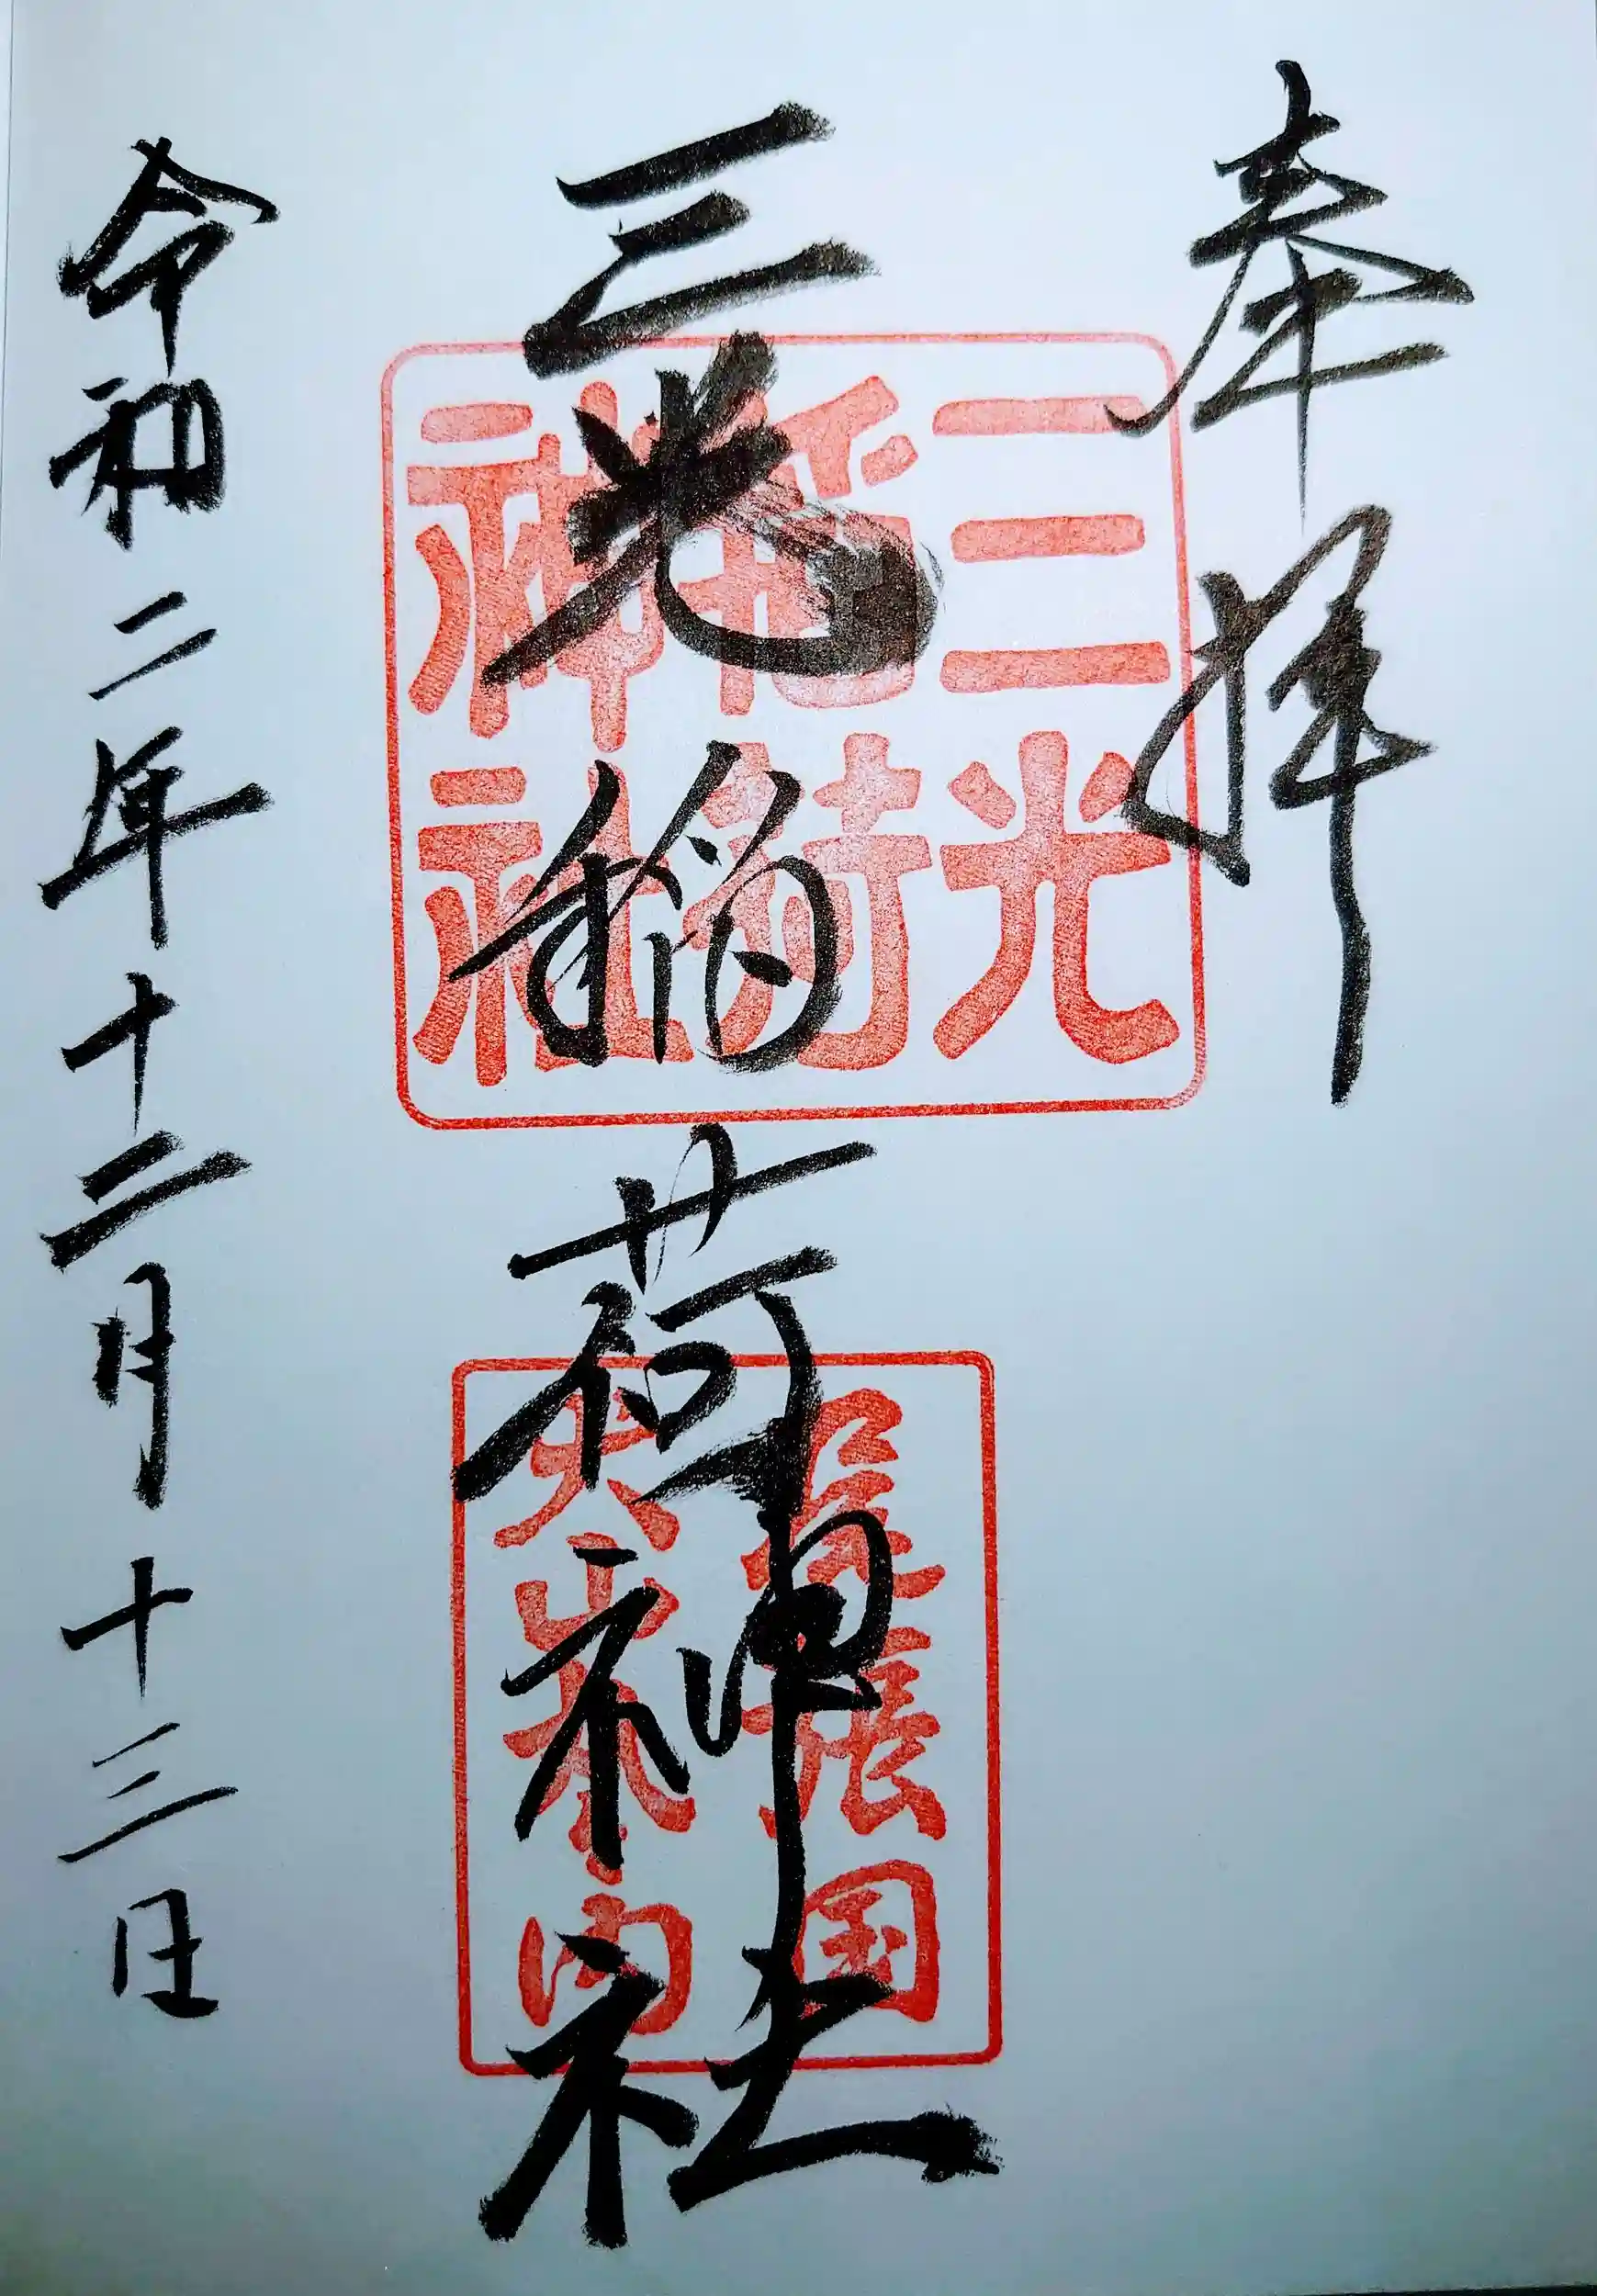 奉拝
三光稲荷神社
令和二年十二月十三日
三光
稲荷
神社
尾張国
犬山城内